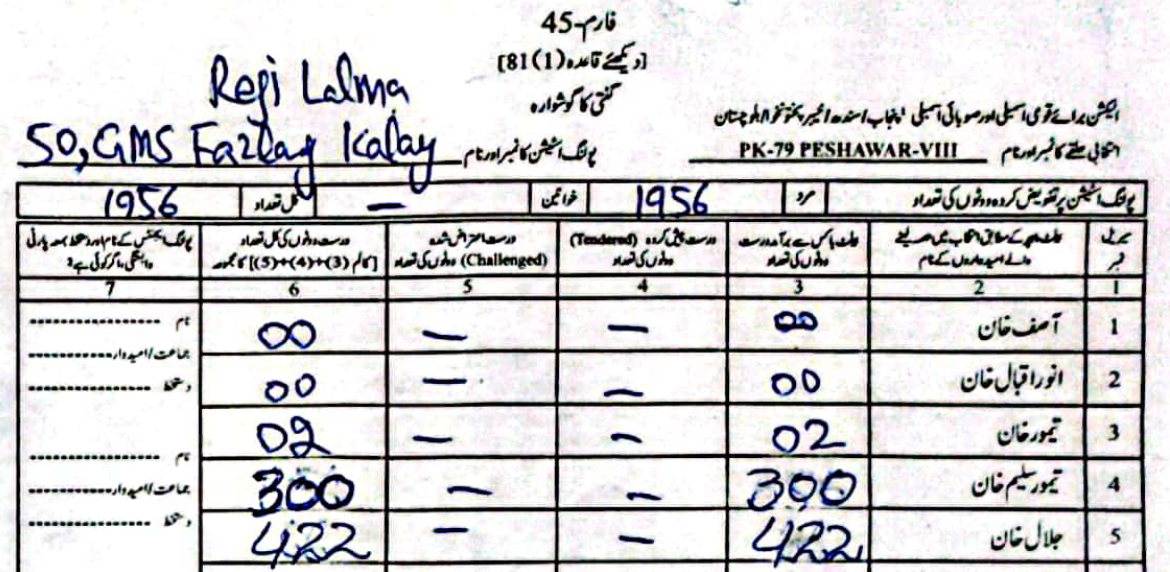 فارم-45
[دیکھئے قاعدہ (1)81]
گنتی کا گوشوارہ
Regi Lalma
الیکشن برائے قومی اسمبلی اور صوبائی اسمبلی پنجاب/سندھ/خیبر پختونخوا/بلوچستان
انتخابی حلقے کا نمبر اور نام PK-79 PESHAWAR-VIII پولنگ اسٹیشن کا نمبر اور نام 50, GMS Fazlag Kalay
پولنگ اسٹیشن پر تفویض کردہ ووٹوں کی تعداد مرد 1956 خواتین — کل تعداد 1956
سیریل نمبر
والے امیدواروں کے نام
بیلٹ باکس سے برآمد درست ووٹوں کی تعداد
درست پیش کردہ (Tendered) ووٹوں کی تعداد
درست اعتراض شدہ (Challenged) ووٹوں کی تعداد
درست ووٹوں کی کل تعداد [کالم (3)+(4)+(5) کا مجموعہ]
پولنگ ایجنٹس کے نام اور دستخط بمعہ پارٹی وابستگی، اگر کوئی ہے؟
1 2 3 4 5 6 7
1 آصف خان 00 — — 00 نام
جماعت/امیدوار
2 انور اقبال خان 00 — — 00 دستخط
3 تیمور خان 02 — — 02 نام
4 تیمور سلیم خان 300 — — 300 جماعت/امیدوار
5 جلال خان 422 — — 422 دستخط